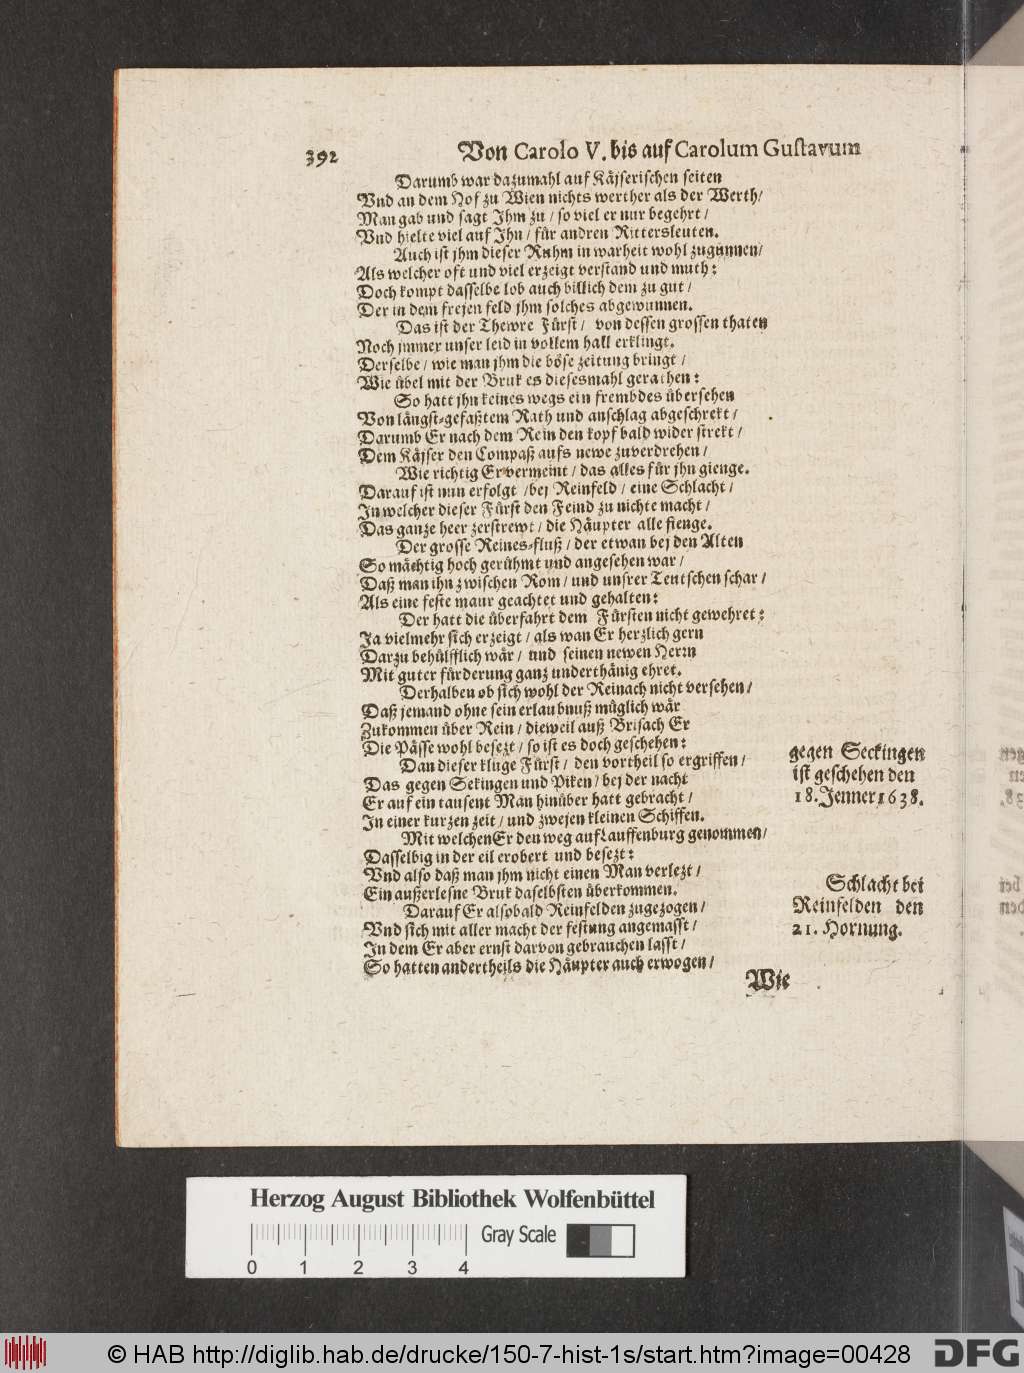 392 Von Carolo V. bis auf Carolum Gustavum
Darumb war dazumahl auf Käjserischen seiten
Vnd an dem Hof zu Wien nichts werther als der Werth/
Man gab und sagt Ihm zu / so viel er nur begehrt /
Vnd hielte viel auf Ihn / für andren Rittersleuten.
Auch ist jhm dieser Ruhm in warheit wohl zugunnen/
Als welcher oft und viel erzeigt verstand und muth:
Doch kompt dasselbe lob auch billich dem zu gut /
Der in dem frejen feld jhm solches abgewunnen.
Das ist der Thewre Fürst / von dessen grossen thaten
Noch jmmer unser leid in vollem hall erklingt.
Derselbe / wie man jhm die böse zeitung bringt /
Wie übel mit der Bruk es diesesmahl gerathen:
So hatt jhn keines wegs ein frembdes übersehen
Von längst-gefaßtem Rath und anschlag abgeschrekt /
Darumb Er nach dem Rein den kopf bald wider strekt /
Dem Käjser den Compaß aufs newe zuverdrehen /
Wie richtig Er vermeint / das alles für jhn gienge.
Darauf ist nun erfolgt / bej Reinfeld / eine Schlacht /
In welcher dieser Fürst den Feind zu nichte macht /
Das ganze heer zerstrewt / die Häupter alle fienge.
Der grosse Reines-fluß / der etwan bej den Alten
So mächtig hoch gerühmt und angesehen war /
Daß man ihn zwischen Rom / und unsrer Teutschen schar /
Als eine feste maur geachtet und gehalten:
Der hatt die überfahrt dem Fürsten nicht gewehret:
Ja vielmehr sich erzeigt / als wan Er herzlich gern
Darzu behülfflich wär / und seinen newen Herrn
Mit guter fürderung ganz underthänig ehret.
Derhalben ob sich wohl der Reinach nicht versehen /
Daß jemand ohne sein erlaubnuß müglich wär
Zukommen über Rein / dieweil auß Brisach Er
Die Pässe wohl besezt / so ist es doch geschehen:
Dan dieser kluge Fürst / den vortheil so ergriffen /
Das gegen Sekingen und Piken / bej der nacht
Er auf ein tausent Man hinüber hatt gebracht /
In einer kurzen zeit / und zwejen kleinen Schiffen.
Mit welchen Er den weg auf Lauffenburg genommen/
Dasselbig in der eil erobert und besezt:
Vnd also daß man jhm nicht einen Man verlezt /
Ein außerlesne Bruk daselbsten überkommen.
Darauf Er alsobald Reinfelden zugezogen /
Vnd sich mit aller macht der festung angemasst /
In dem Er aber ernst darvon gebrauchen lasst /
So hatten andertheils die Häupter auch erwogen /
Wie
gegen Seckingen
ist geschehen den
18. Jenner 1638.
Schlacht bei
Reinfelden den
21. Hornung.
Herzog August Bibliothek Wolfenbüttel
Gray Scale
0 1 2 3 4
© HAB http://diglib.hab.de/drucke/150-7-hist-1s/start.htm?image=00428
DFG